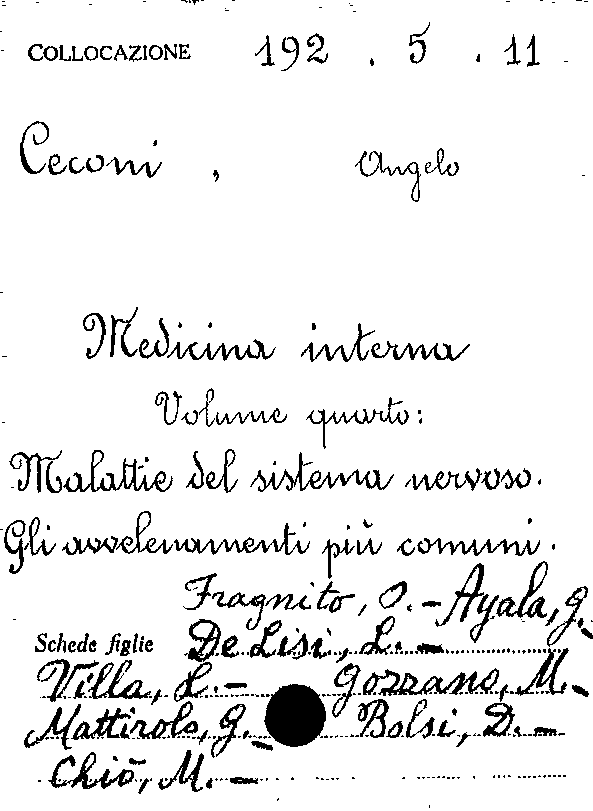 COLLOCAZIONE 192 . 5 . 11
Ceconi , Angelo
Medicina interna
Volume quarto:
Malattie del sistema nervoso.
Gli avvelenamenti più comuni.
Fragnito, O. - Ayala, G. -
Schede figlie De Lisi, L. -
Villa, L. - Gozzano, M. -
Mattirolo, G. - Bolsi, D. -
Chiò, M. -